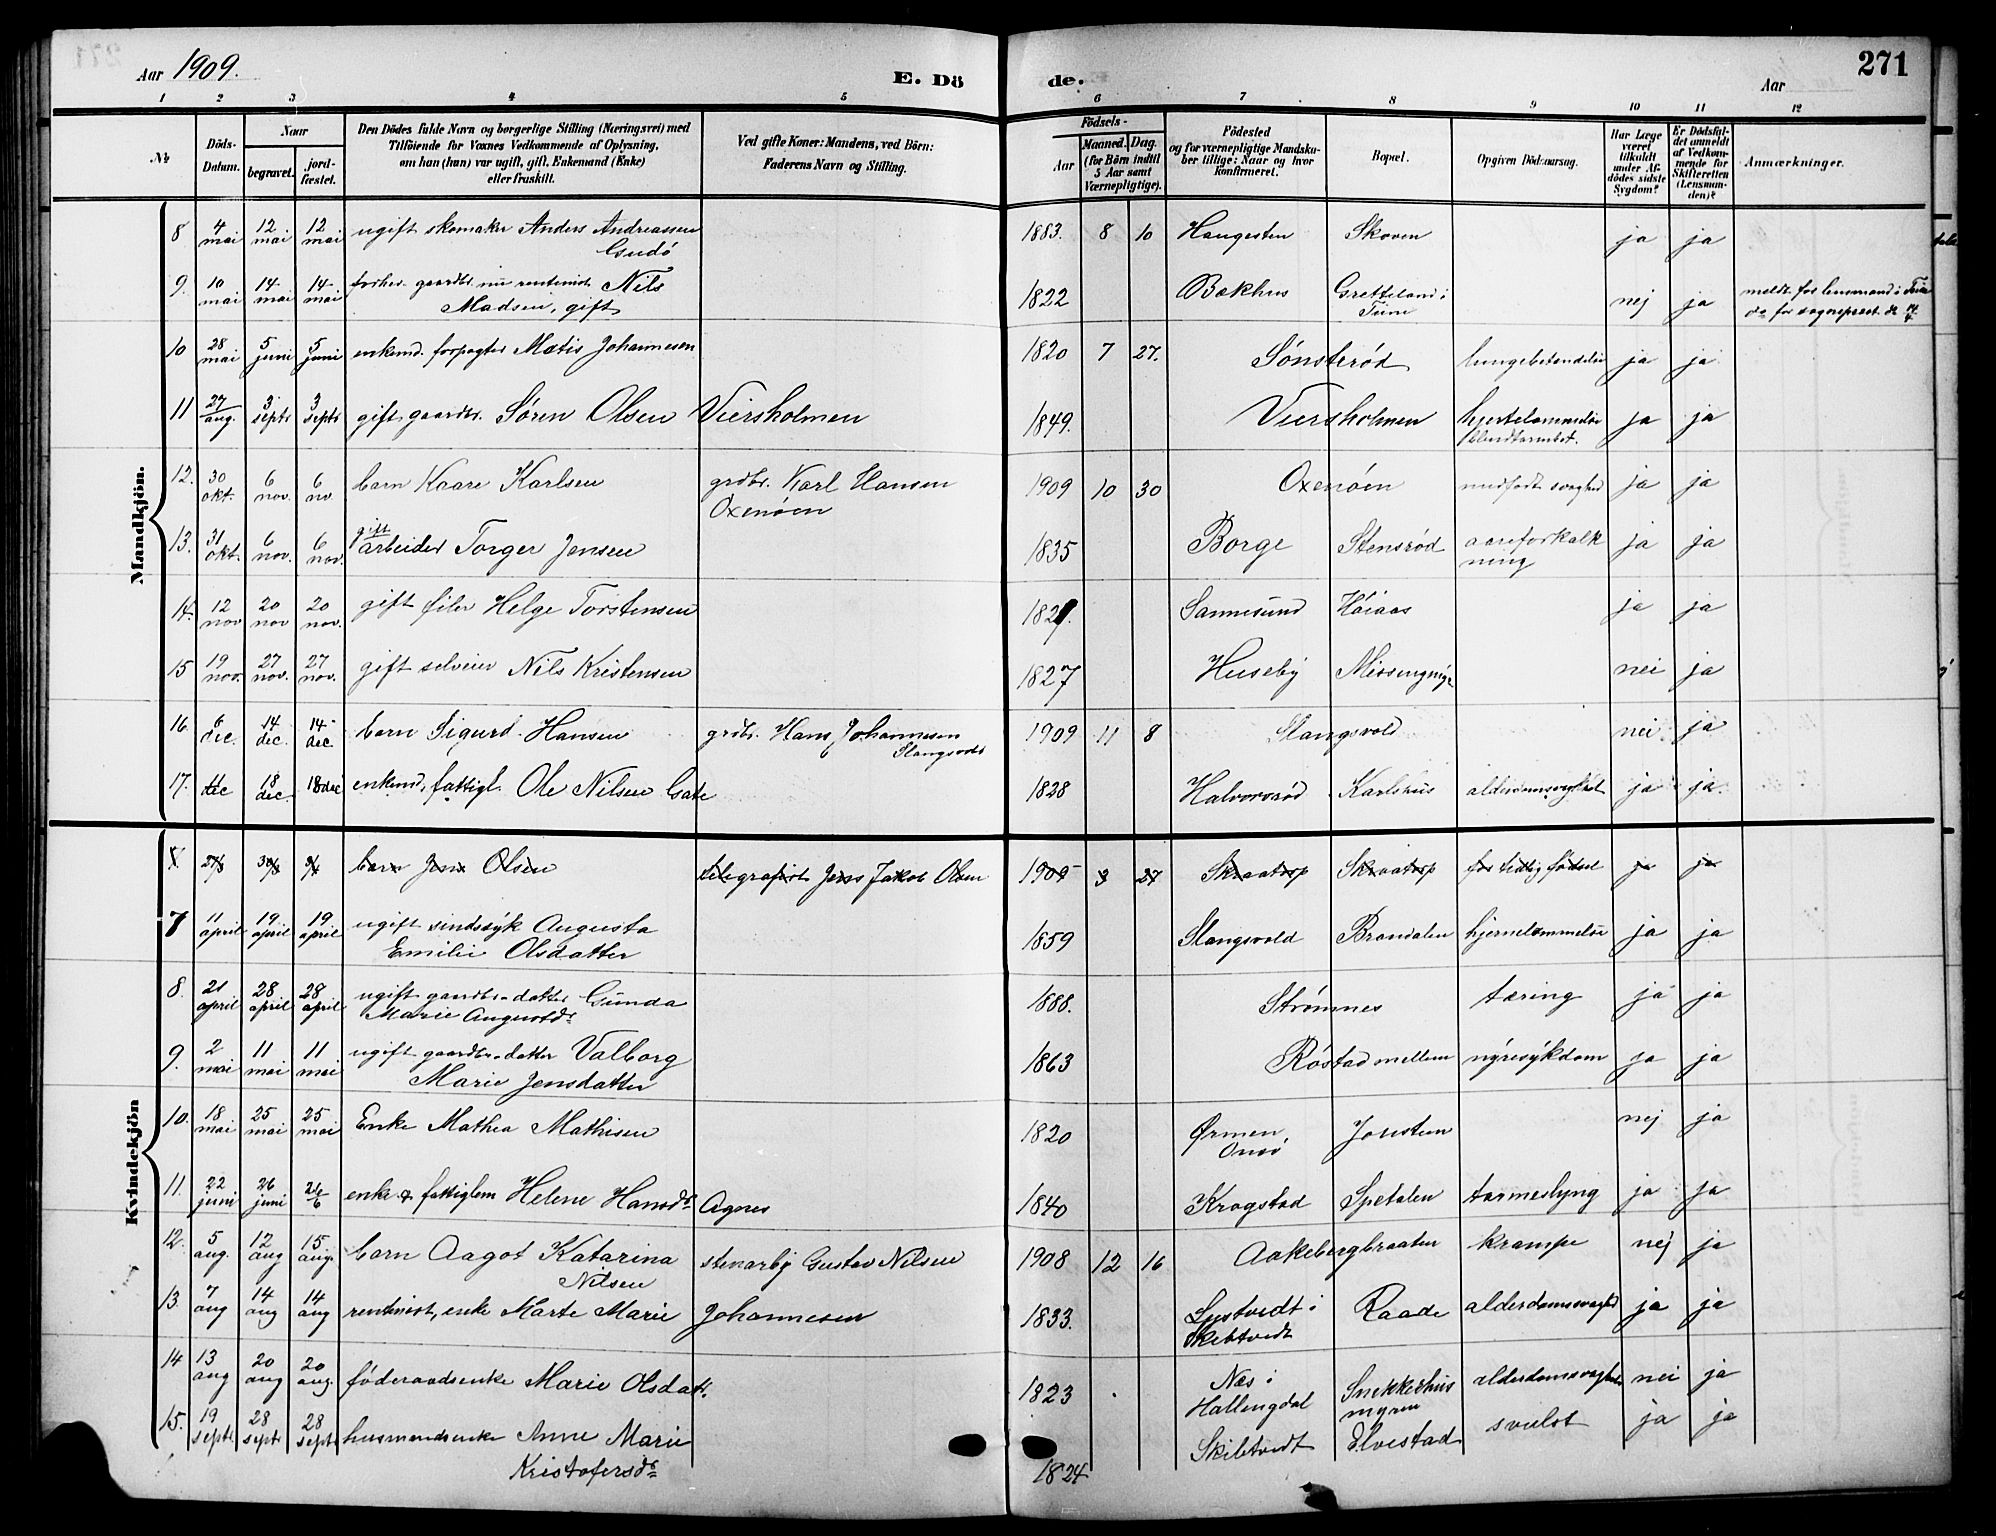 Aar 1909.
E. Dö
de.
Aar
271
1 2 3 4 5 6 7 8 9 10 11 12
No
Döds-Datum.
Naar
begravet.
jord-fæstet.
Den Dödes fulde Navn og borgerlige Stilling (Næringsvei) med
Tilföiende for Voxnes Vedkommende af Oplysning,
om han (hun) var ugift, gift, Enkemand (Enke)
eller fraskilt.
Ved gifte Koner: Mandens, ved Börn:
Faderens Navn og Stilling.
Födsels-
Aar
Maaned. Dag.
(for Börn indtil
5 Aar samt
Værnepligtige).
Födested
og for værnepligtige Mandska-
ber tillige: Naar og hvor
konfirmeret.
Bopæl.
Opgiven Dödsaarsag.
Har Læge
været
tilkaldt
under Af-
dödes sidste
Sygdom?
Er Dödsfal-
det anmeldt
af Vedkom-
mende for
Skifteretten
(Lensman-
den)?
Anmærkninger.
Mandkjön.
8 4 mai 12 mai 12 mai ugift skomaker Anders Andreassen Gudö 1883. 8 10 Haugesten Skoven ja ja
9. 10 mai 14 mai 14 mai forhen. gaardbr. nu rentenist Nils Madsen, gift 1822 Bakhus Gretteland i Tune nej ja meldt for lensmand i Tune do for sogneprest
10 28 mai 5 juni 5 juni enkemd. forpagter Matis Johannesen 1820 7 27. Sønsterød lungebetendelse ja ja
11 27/aug. 3 septr 3 septr gift gaardbr. Søren Olsen Viersholmen 1849. Viersholmen hjertelammelse ja ja
12. 30 okt. 6 nov. 6 nov. barn Kaare Karlsen grdbr. Karl Hansen Oxenøen 1909 10 30 Oxenøen medfødt svaghed ja ja
13. 31 okt. 6 nov. 6 nov. gift arbeider Torger Jensen 1835 Borge Stensrød aareforkalkning ja ja
14. 12 nov 20 nov 20 nov. gift feler Helge Torstensen Sannesund Høiaas ja ja
15 19 nov. 27 nov. 27 nov. gift selveier Nils Kristensen 1827 Huseby Missingmyr nei ja
16. 8 dec. 14 dec. 14 dec. barn Sigurd Hansen grdbr. Hans Johannesen Slangsvold 1909 11 8 Slangsvold nei ja
17. 11 dec 18 dec. 18 dec enkemd, fattigl. Ole Nilsen Gate 1828 Halvorsrød Karlshus alderdomssvaghed ja ja.
Kvindekjön
27/3 30/3 barn Jens Olsen telegrafist Jens Jakob Olsen 1909 3 27 Skraatorp Skraatorp for tidlig fødsel ja ja
7 11 april 19 april 19 april ugift sindssyk Augusta Emilie Olsdatter 1859 Slangsvold Brandalen hjernelammelse ja ja
8. 21 april 28 april 28 april ugift gaardbr.-datter Gunda Marie Augustdr 1888. Strømnes tæring ja ja
9. 2 mai 11 mai 11 mai ugift gaardbr.-datter Valborg Marie Jensdatter 1863 Røstad mellem nyresykdom ja ja
10. 18 mai 25 mai 25 mai Enke Mathea Mathisen 1820 Ørmen, Onsø Jonsten nej ja
11. 22 juni 26 juni 26/6 enke & fattiglem Helene Hansdr Agnes 1840 Krogstad Spetalen tarmeslyng ja ja
12. 5 aug. 12 aug 15 aug. barn Aagot Katarina Nilsen stenarb. Gustav Nilsen 1908 12 16 Aakebergbraaten krampe nej ja
13. 7 aug 14 aug 14 aug rentenist, enke Marte Marie Johannesen 1833. Lystvedt i Skibtvedt Raade alderdomssvaghed ja ja
14 13 aug 20 aug 20 aug. föderaadsenke Marie Olsdatr. 1823 Næs i Hallingdal Snekkerhus myren alderdomssvaghed nei ja
15. 19 septr 28 septr 28 septr husmandsenke Anne Marie Kristofersdr 1824 Skibtvedt Elvestad svulst ja ja